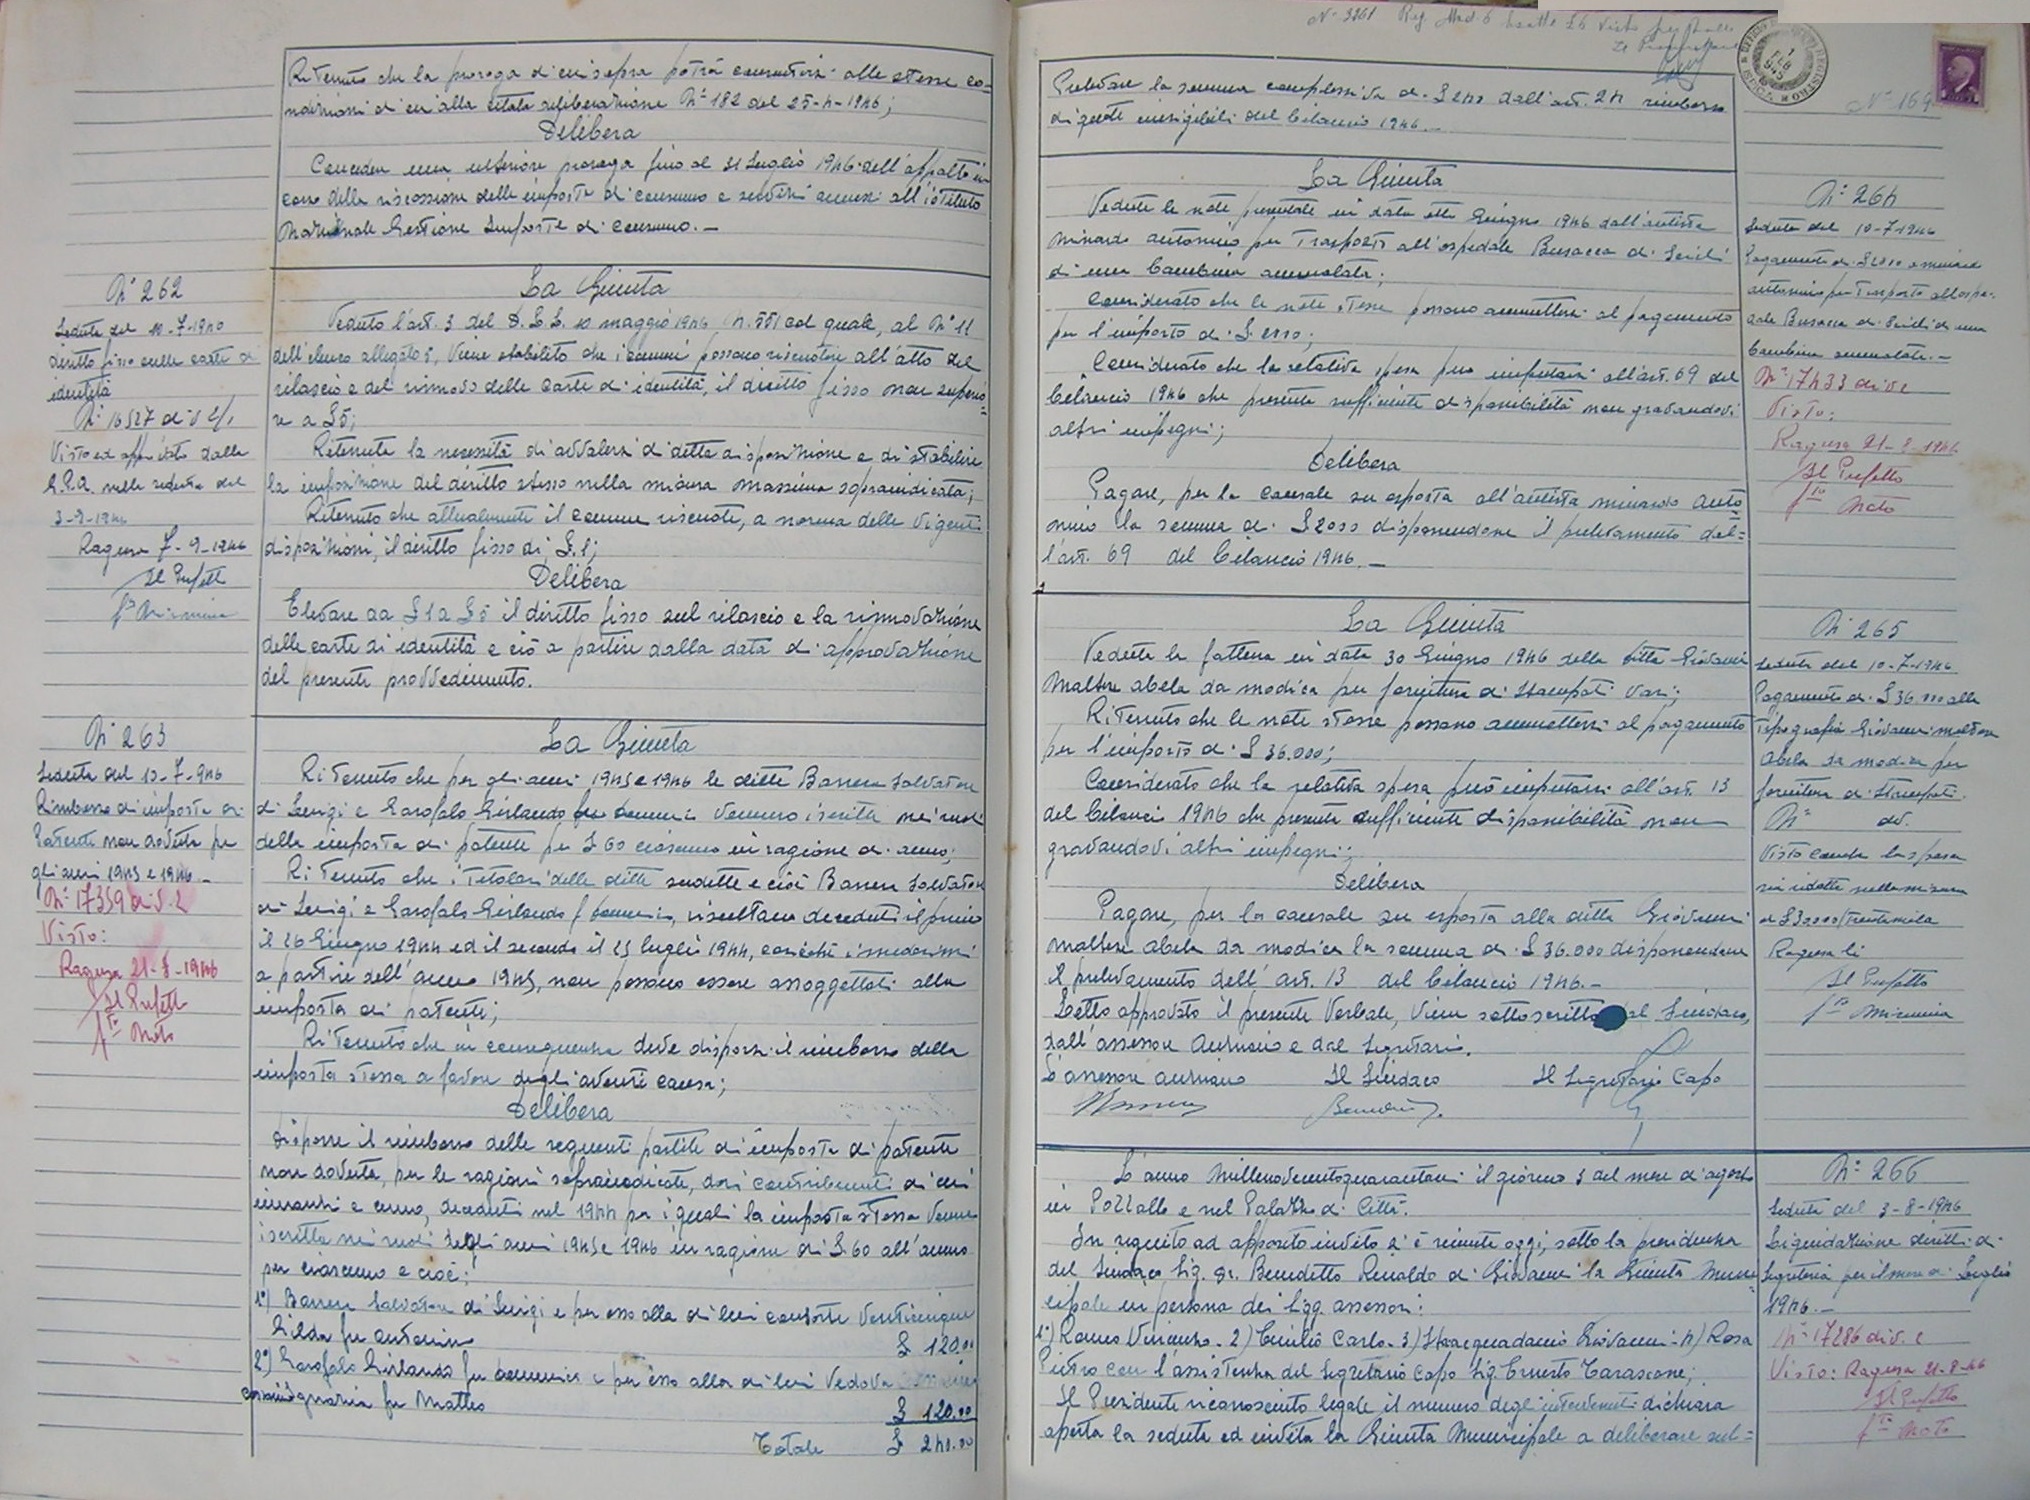 Ritenuto che la proroga di cui sopra potrà concedersi alle stesse co=
ndizioni di cui alla citata deliberazione N° 182 del 25-4-1946;
Delibera
Concedere una ulteriore proroga fino al 31 Luglio 1946 dell'appalto in
corso della riscossione delle imposte di consumo e servizi annessi all'istituto
Nazionale Gestione Imposte di Consumo. -
N° 262
Seduta del 10-7-1940
diritto fisso sulle carte di
identità
N° 16527 div.
Visto ed approvato dalla
G.P.A. nella seduta del
3-9-1946
Ragusa 7-9-1946
Il Prefetto
f° Mirmina
La Giunta
Veduto l'art. 3 del D.L.L. 10 maggio 1946 N. 551 col quale, al N° 11
dell'elenco allegato, viene stabilito che i comuni possono riscuotere all'atto del
rilascio e del rinnovo delle carte di identità, il diritto fisso non superio=
re a £ 5;
Ritenuta la necessità di avvalersi di detta disposizione e di stabilire
la imposizione del diritto stesso nella misura massima sopraindicata;
Ritenuto che attualmente il comune riscuote, a norma delle vigenti
disposizioni, il diritto fisso di £. 1;
Delibera
Elevare da £ 1 a £ 5 il diritto fisso sul rilascio e la rinnovazione
delle carte di identità e ciò a partire dalla data di approvazione
del presente provvedimento.
N° 263
Seduta del 10-7-946
Rimborso di imposta di
Patente non dovuta per
gli anni 1945 e 1946 -
N° 17359 div. 2
Visto:
Ragusa 21-8-1946
Il Prefetto
f.to Moto
La Giunta
Ritenuto che per gli anni 1945 e 1946 le ditte Barrera Salvatore
di Luigi e Garofalo Girlando fu vennero iscritte nei ruoli
della imposta di patente per £ 60 ciascuno in ragione di anno;
Ritenuto che i titolari delle ditte sudette e cioè Barrera Salvatore
di Luigi e Garofalo Girlando f risultano deceduti il primo
il 26 Giugno 1944 ed il secondo il 25 luglio 1944, cosicchè i medesimi
a partire dell'anno 1945, non possono essere assoggettati alla
imposta di patente;
Ritenuto che in conseguenza deve disporsi il rimborso della
imposta stessa a favore degli aventi causa;
Delibera
Disporre il rimborso delle seguenti partite di imposta di patente
non dovuta, per le ragioni sopraindicate, dai contribuenti di cui
innanzi e cenno, deceduti nel 1944 per i quali la imposta stessa venne
iscritta nei ruoli degli anni 1945 e 1946 in ragione di £. 60 all'anno
per ciascuno e cioè:
1°) Barrera Salvatore di Luigi e per esso alla di lui consorte Venticinque
Gilda fu Antonino £ 120.00
2°) Garofalo Girlando fu e per esso alla di lui Vedova
Ignazia fu Matteo £ 120.00
Totale £ 240.00
N° 3261 Reg. Mod. 6
1 FEB 945
N° 169
Prelevare la somma complessiva di £ 240 dall'art. 24 rimborso
di quote inesigibili del bilancio 1946. -
La Giunta
Vedute le note presentate in data otto Giugno 1946 dall'autista
Minardo Antonino per Trasporto all'ospedale Busacca di Scicli
di una bambina ammalata;
Considerato che le note stesse possono ammettersi al pagamento
per l'importo di £. 2000;
Considerato che la relativa spesa può imputarsi all'art. 69 del
bilancio 1946 che presenta sufficiente disponibilità non gravandovi
altri impegni;
Delibera
Pagare, per la causale su esposta all'autista Minardo Anto
nino la somma di £ 2000 disponendone il prelevamento dal=
l'art. 69 del bilancio 1946. -
N° 264
Seduta del 10-7-1946
Pagamento di £ 2000 a Minardo
Antonino per Trasporto all'ospe-
dale Busacca di Scicli di una
bambina ammalata. -
N° 17433 div. 2
Visto:
Ragusa 21-8-1946
Il Prefetto
f.to Moto
La Giunta
Veduta la fattura in data 30 Giugno 1946 della ditta Giovanni
Maltese Abela da Modica per fornitura di Stampati vari;
Ritenuto che le note stesse possono ammettersi al pagamento
per l'importo di £ 36.000;
Considerato che la relativa spesa può imputarsi all'art. 13
del bilancio 1946 che presenta sufficiente disponibilità non
gravandovi altri impegni;
Delibera
Pagare, per la causale su esposta alla ditta Giovanni
Maltese Abela da Modica la somma di £ 36.000 disponendone
il prelevamento dell'art. 13 del bilancio 1946. -
Letto approvato il presente Verbale, viene sottoscritto dal Sindaco,
dall'assessore Anziano e dal Segretario.
L'assessore anziano Il Sindaco Il Segretario Capo
N° 265
Seduta del 10-7-1946
Pagamento di £ 36.000 alla
Tipografia Giovanni Maltese
Abela da Modica per
fornitura di Stampati.
N° div.
Visto canche la spesa
sia ridotta nella misura
di £ 32000/Trentamila
Ragusa li
Il Prefetto
f.to Mirmina
L'anno millenovecentoquarantasei il giorno 3 del mese di agosto
in Pozzallo e nel Palazzo di Città.
In seguito ad apposito invito si è riunita oggi, sotto la presidenza
del Sindaco Sig. Dr. Benedetto Rinaldo di Giovanni la Giunta Muni=
cipale in persona dei Sigg. assessori:
1°) Romeo Vincenzo - 2) Emilio Carlo - 3) Giovanni - 4) Rosa
Pietro con l'assistenza del Segretario Capo Sig. Ernesto Tarascone;
Il Presidente riconosciuto legale il numero degli intervenuti dichiara
aperta la seduta ed invita la Giunta Municipale a deliberare sul=
N° 266
Seduta del 3-8-1946
Liquidazione diritti di
Segreteria per il mese di Luglio
1946. -
N° 17286 div. 2
Visto: Ragusa 21-8-46
Il Prefetto
f.to Moto